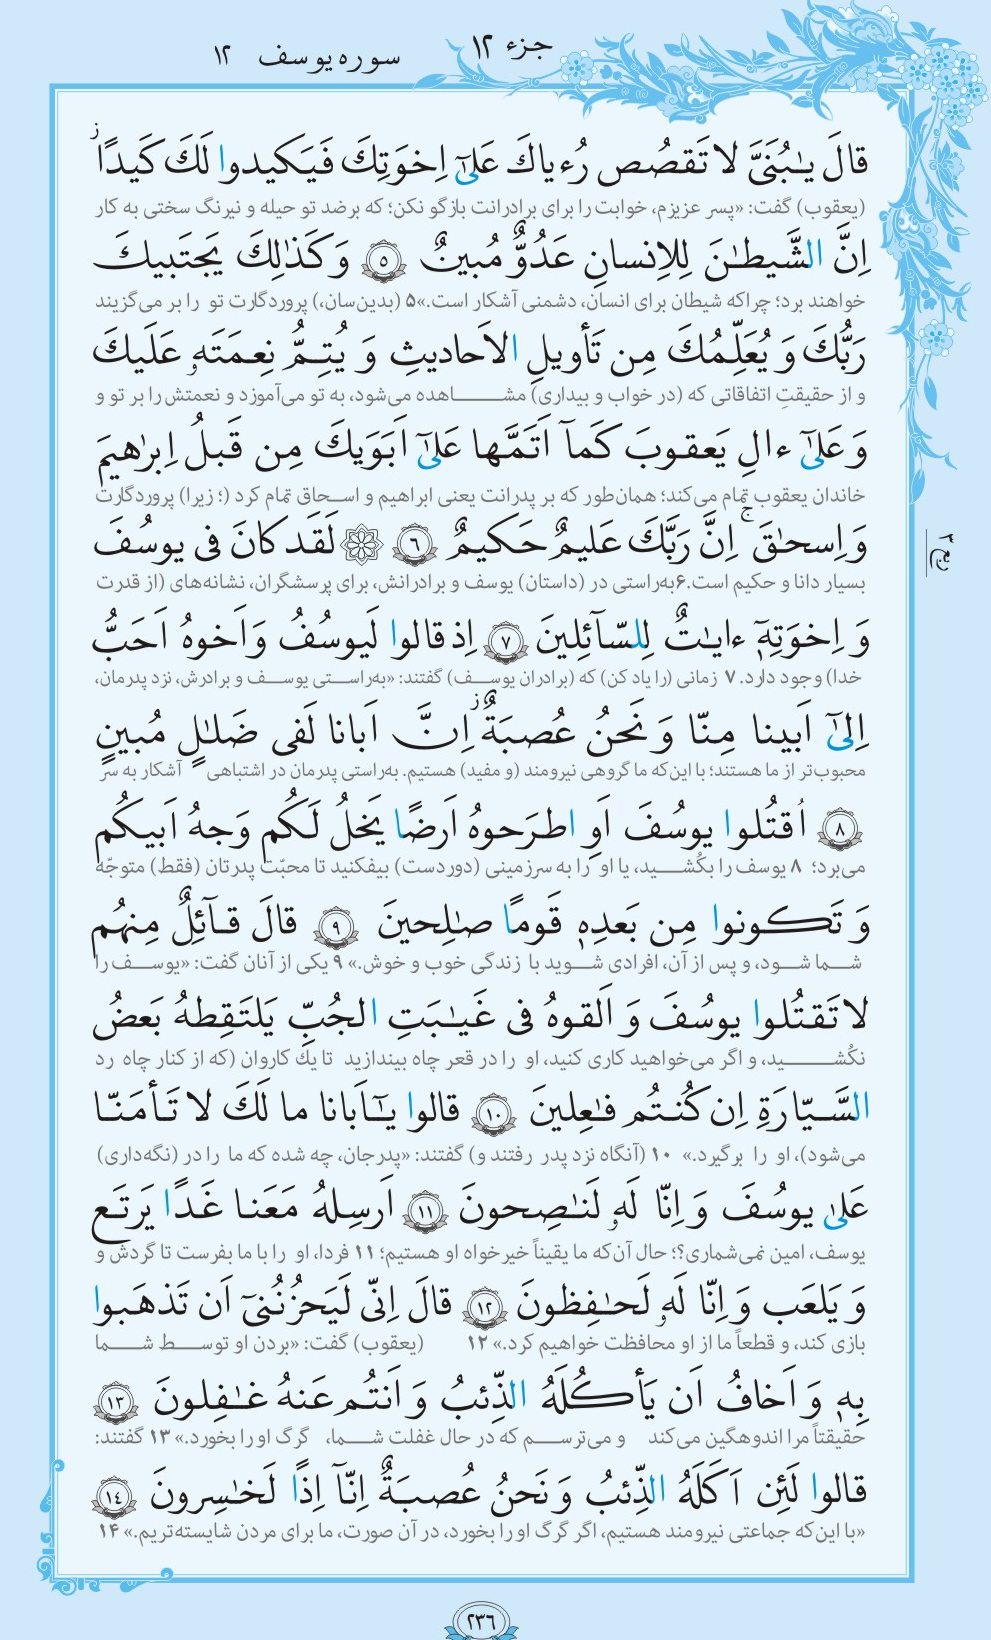 جزء ۱۲
سوره یوسف ۱۲
قالَ يـٰبُنَىَّ لا تَقصُص رُءياكَ عَلىٰٓ اِخوَتِكَ فَيَكيدوا لَكَ كَيدًا ۖز
(یعقوب) گفت: «پسر عزیزم، خوابت را برای برادرانت بازگو نکن؛ که برضد تو حیله و نیرنگ سختی به کار
اِنَّ الشَّيطـٰنَ لِلاِنسانِ عَدُوٌّ مُبينٌ ﴿٥﴾ وَ كَذٰلِكَ يَجتَبيكَ
خواهند برد؛ چراکه شیطان برای انسان، دشمنی آشکار است.»۵ (بدین‌سان،) پروردگارت تو را بر می‌گزیند
رَبُّكَ وَ يُعَلِّمُكَ مِن تَأويلِ الاَحاديثِ وَ يُتِمُّ نِعمَتَهٗ عَلَيكَ
و از حقیقتِ اتفاقاتی که (در خواب و بیداری) مشـــــاهده می‌شود، به تو می‌آموزد و نعمتش را بر تو و
وَ عَلىٰٓ ءالِ يَعقوبَ كَمآ اَتَمَّها عَلىٰٓ اَبَوَيكَ مِن قَبلُ اِبرٰهيمَ
خاندان یعقوب تمام می‌کند؛ همان‌طور که بر پدرانت یعنی ابراهیم و اســحاق تمام کرد (؛ زیرا) پروردگارت
وَ اِسحـٰقَ ۚ اِنَّ رَبَّكَ عَليمٌ حَكيمٌ ﴿٦﴾ ۞ لَقَد كانَ فى يوسُفَ
بسیار دانا و حکیم است.۶به‌راستی در (داستان) یوسف و برادرانش، برای پرسشگران، نشانه‌های (از قدرت
ربع ۲
وَ اِخوَتِهٖٓ ءايـٰتٌ لِلسّآئِلينَ ﴿٧﴾ اِذ قالوا لَيوسُفُ وَ اَخوهُ اَحَبُّ
خدا) وجود دارد. ۷ زمانی (را یاد کن) که (برادران یوســف) گفتند: «به‌راســتی یوســف و برادرش، نزد پدرمان،
اِلىٰٓ اَبينا مِنّا وَ نَحنُ عُصبَةٌ ز اِنَّ اَبانا لَفى ضَلـٰلٍ مُبينٍ
محبوب‌تر از ما هستند؛ با این‌که ما گروهی نیرومند (و مفید) هستیم. به‌راستی پدرمان در اشتباهی آشکار به سر
﴿٨﴾ اُقتُلوا يوسُفَ اَوِ اطرَحوهُ اَرضًا يَخلُ لَكُم وَجهُ اَبيكُم
می‌برد؛ ۸ یوسف را بکُشـــید، یا او را به سرزمینی (دوردست) بیفکنید تا محبّت پدرتان (فقط) متوجّه
وَ تَكونوا مِن بَعدِهٖ قَومًا صـٰلِحينَ ﴿٩﴾ قالَ قآئِلٌ مِنهُم
شـــما شـــود، و پس از آن، افرادی شـــوید با زندگی خوب و خوش.» ۹ یکی از آنان گفت: «یوســـف را
لا تَقتُلوا يوسُفَ وَ اَلقوهُ فى غَيـٰبَتِ الجُبِّ يَلتَقِطهُ بَعضُ
نکُشـــــید، و اگر می‌خواهید کاری کنید، او را در قعر چاه بیندازید تا یك کاروان (که از کنار چاه رد
السَّيّارَةِ اِن كُنتُم فـٰعِلينَ ﴿١٠﴾ قالوا يـٰٓاَبانا ما لَكَ لا تَأمَنّا
می‌شود)، او را برگیرد.» ۱۰ (آنگاه نزد پدر رفتند و) گفتند: «پدرجان، چه شده که ما را در (نگه‌داری)
عَلىٰ يوسُفَ وَ اِنّا لَهٗ لَنـٰصِحونَ ﴿١١﴾ اَرسِلهُ مَعَنا غَدًا يَرتَع
یوسف، امین نمی‌شماری؟؛ حال آن‌که ما یقیناً خیرخواه او هستیم؛ ۱۱ فردا، او را با ما بفرست تا گردش و
وَ يَلعَب وَ اِنّا لَهٗ لَحـٰفِظونَ ﴿١٢﴾ قالَ اِنّى لَيَحزُنُنىٓ اَن تَذهَبوا
بازی کند، و قطعاً ما از او محافظت خواهیم کرد.» ۱۲ (یعقوب) گفت: «بردن او توســـط شـــما
بِهٖ وَ اَخافُ اَن يَأكُلَهُ الذِّئبُ وَ اَنتُم عَنهُ غـٰفِلونَ ﴿١٣﴾
حقیقتاً مرا اندوهگین می‌کند و می‌ترســـم که در حال غفلت شـــما، گرگ او را بخورد.» ۱۳ گفتند:
قالوا لَئِن اَكَلَهُ الذِّئبُ وَ نَحنُ عُصبَةٌ اِنّآ اِذًا لَخـٰسِرونَ ﴿١٤﴾
«با این‌که جماعتی نیرومند هستیم، اگر گرگ او را بخورد، در آن صورت، ما برای مردن شایسته‌تریم.» ۱۴
۲۳۶